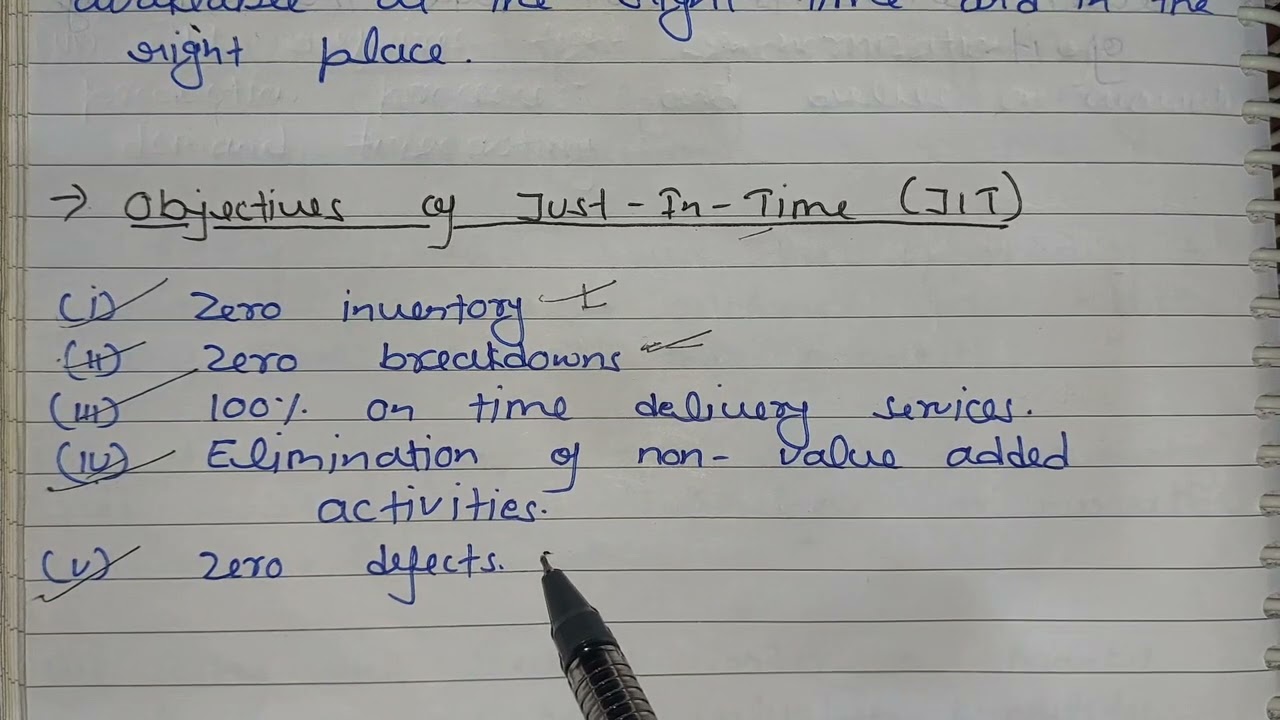 available at the right time and in the
right place.
→ Objectives of Just-In-Time (JIT)
(i) Zero inventory
(ii) Zero breakdowns
(iii) 100% on time delivery services.
(iv) Elimination of non-value added
activities.
(v) Zero defects.